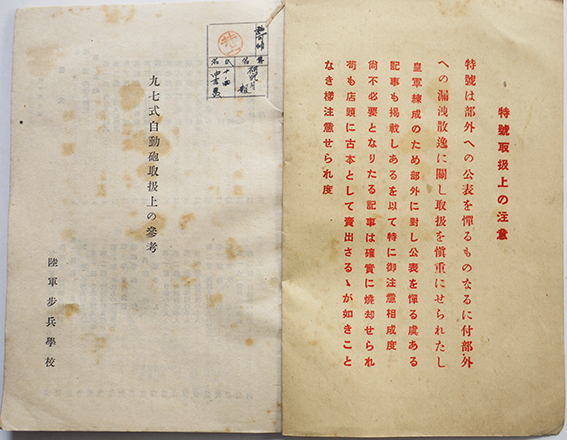 特號取扱上の注意
特號は部外への公表を憚るものなるに付部外
への漏洩散逸に關し取扱を愼重にせられたし
皇軍練成のため部外に對し公表を憚る虞ある
記事も掲載しあるを以て特に御注意相成度
尙不必要となりたる記事は確實に燒却せられ
苟も店頭に古本として賣出さるゝが如きこと
なき樣注意せられ度
九七式自動砲取扱上の參考
陸軍步兵學校